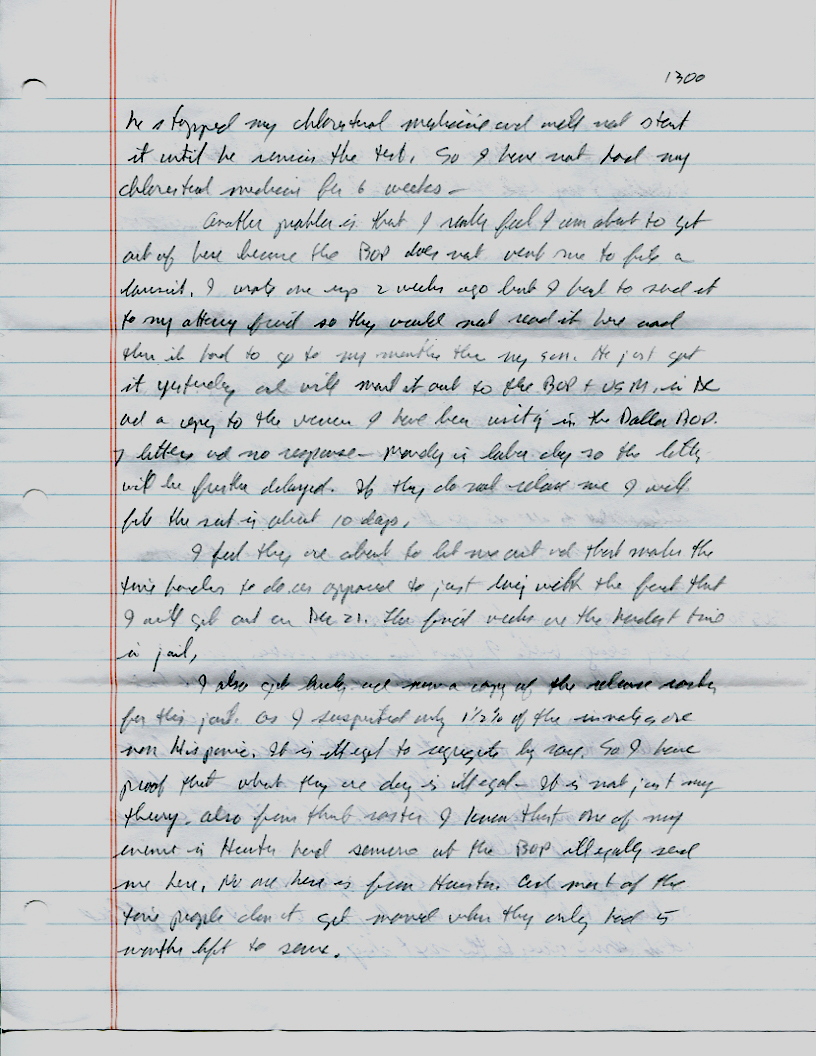 1300
he stopped my chloresteral medicine and will not start
it until he reviews the test. So I have not had my
chloresteral medicine for 6 weeks –
Another problem is that I really feel I am about to get
out of here because the BOP does not want me to file a
lawsuit. I wrote one up 2 weeks ago but I had to send it
to my attorney friend so they would not read it here and
then it had to go to my mother then my son. He just got
it yesterday and will mail it out to the BOP + USM. in DC
and a copy to the women I have been writing in the Dallas BOP.
7 letters and no response – Monday is labor day so the letter
will be further delayed. If they do not release me I will
file the suit in about 10 days.
I feel they are about to let me out and that makes the
time harder to do as opposed to just living with the fact that
I will get out on Dec 21. The final weeks are the hardest time
in jail,
I also got lucky and saw a copy of the release roster
for this jail. as I suspected only 1 1/2 % of the inmates are
non Hispanic. It is illegal to segregate by race. So I have
proof that what they are doing is illegal – It is not just my
theory. also from that roster I know that one of my
enemies in Houston had someone at the BOP illegally send
me here. No one here is from Houston. And most of the
time people don't get moved when they only had 5
months left to serve.